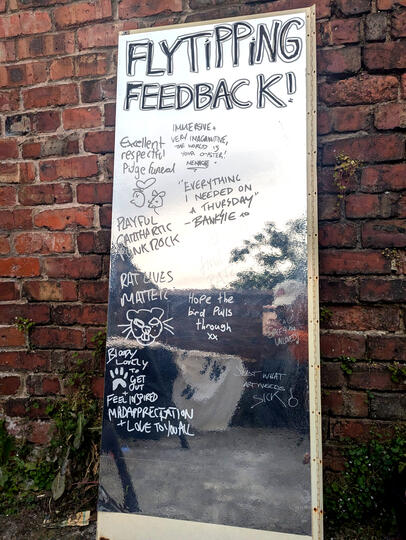 FLYTIPPING
FEEDBACK!
IMMERSIVE +
VERY IMAGINITIVE,
THE WORLD IS
YOUR OYSTER!
Excellent
respectful
Pidge funeral
"EVERYTHING
I NEEDED ON
A THURSDAY"
- BANKSIE
PLAYFUL
CATHARTIC
PUNK ROCK
RAT LIVES
MATTER
Hope the
bird pulls
through
xx
BLOODY
LOVELY
TO
GET
OUT
FEEL INSPIRED
MAD APPRECIATION
+ LOVE TO YOU ALL
JUST WHAT
ART NEEDS
SICK!